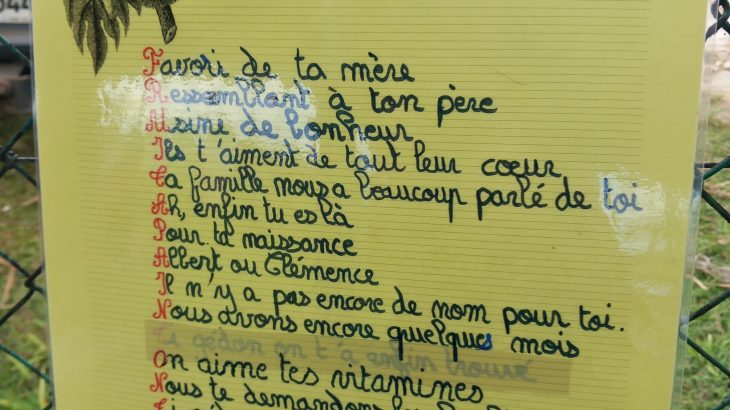 Favori de ta mère
Ressemblant à ton père
Usine de bonheur
Ils t'aiment de tout leur coeur
Ta famille nous a beaucoup parlé de toi
Ah, enfin tu es là
Pour ta naissance
Albert ou Clémence
Il n'y a pas encore de nom pour toi.
Nous avons encore quelques mois
Ti gédon on t'à enfin trouvé
On aime tes vitamines
Nous te demandons